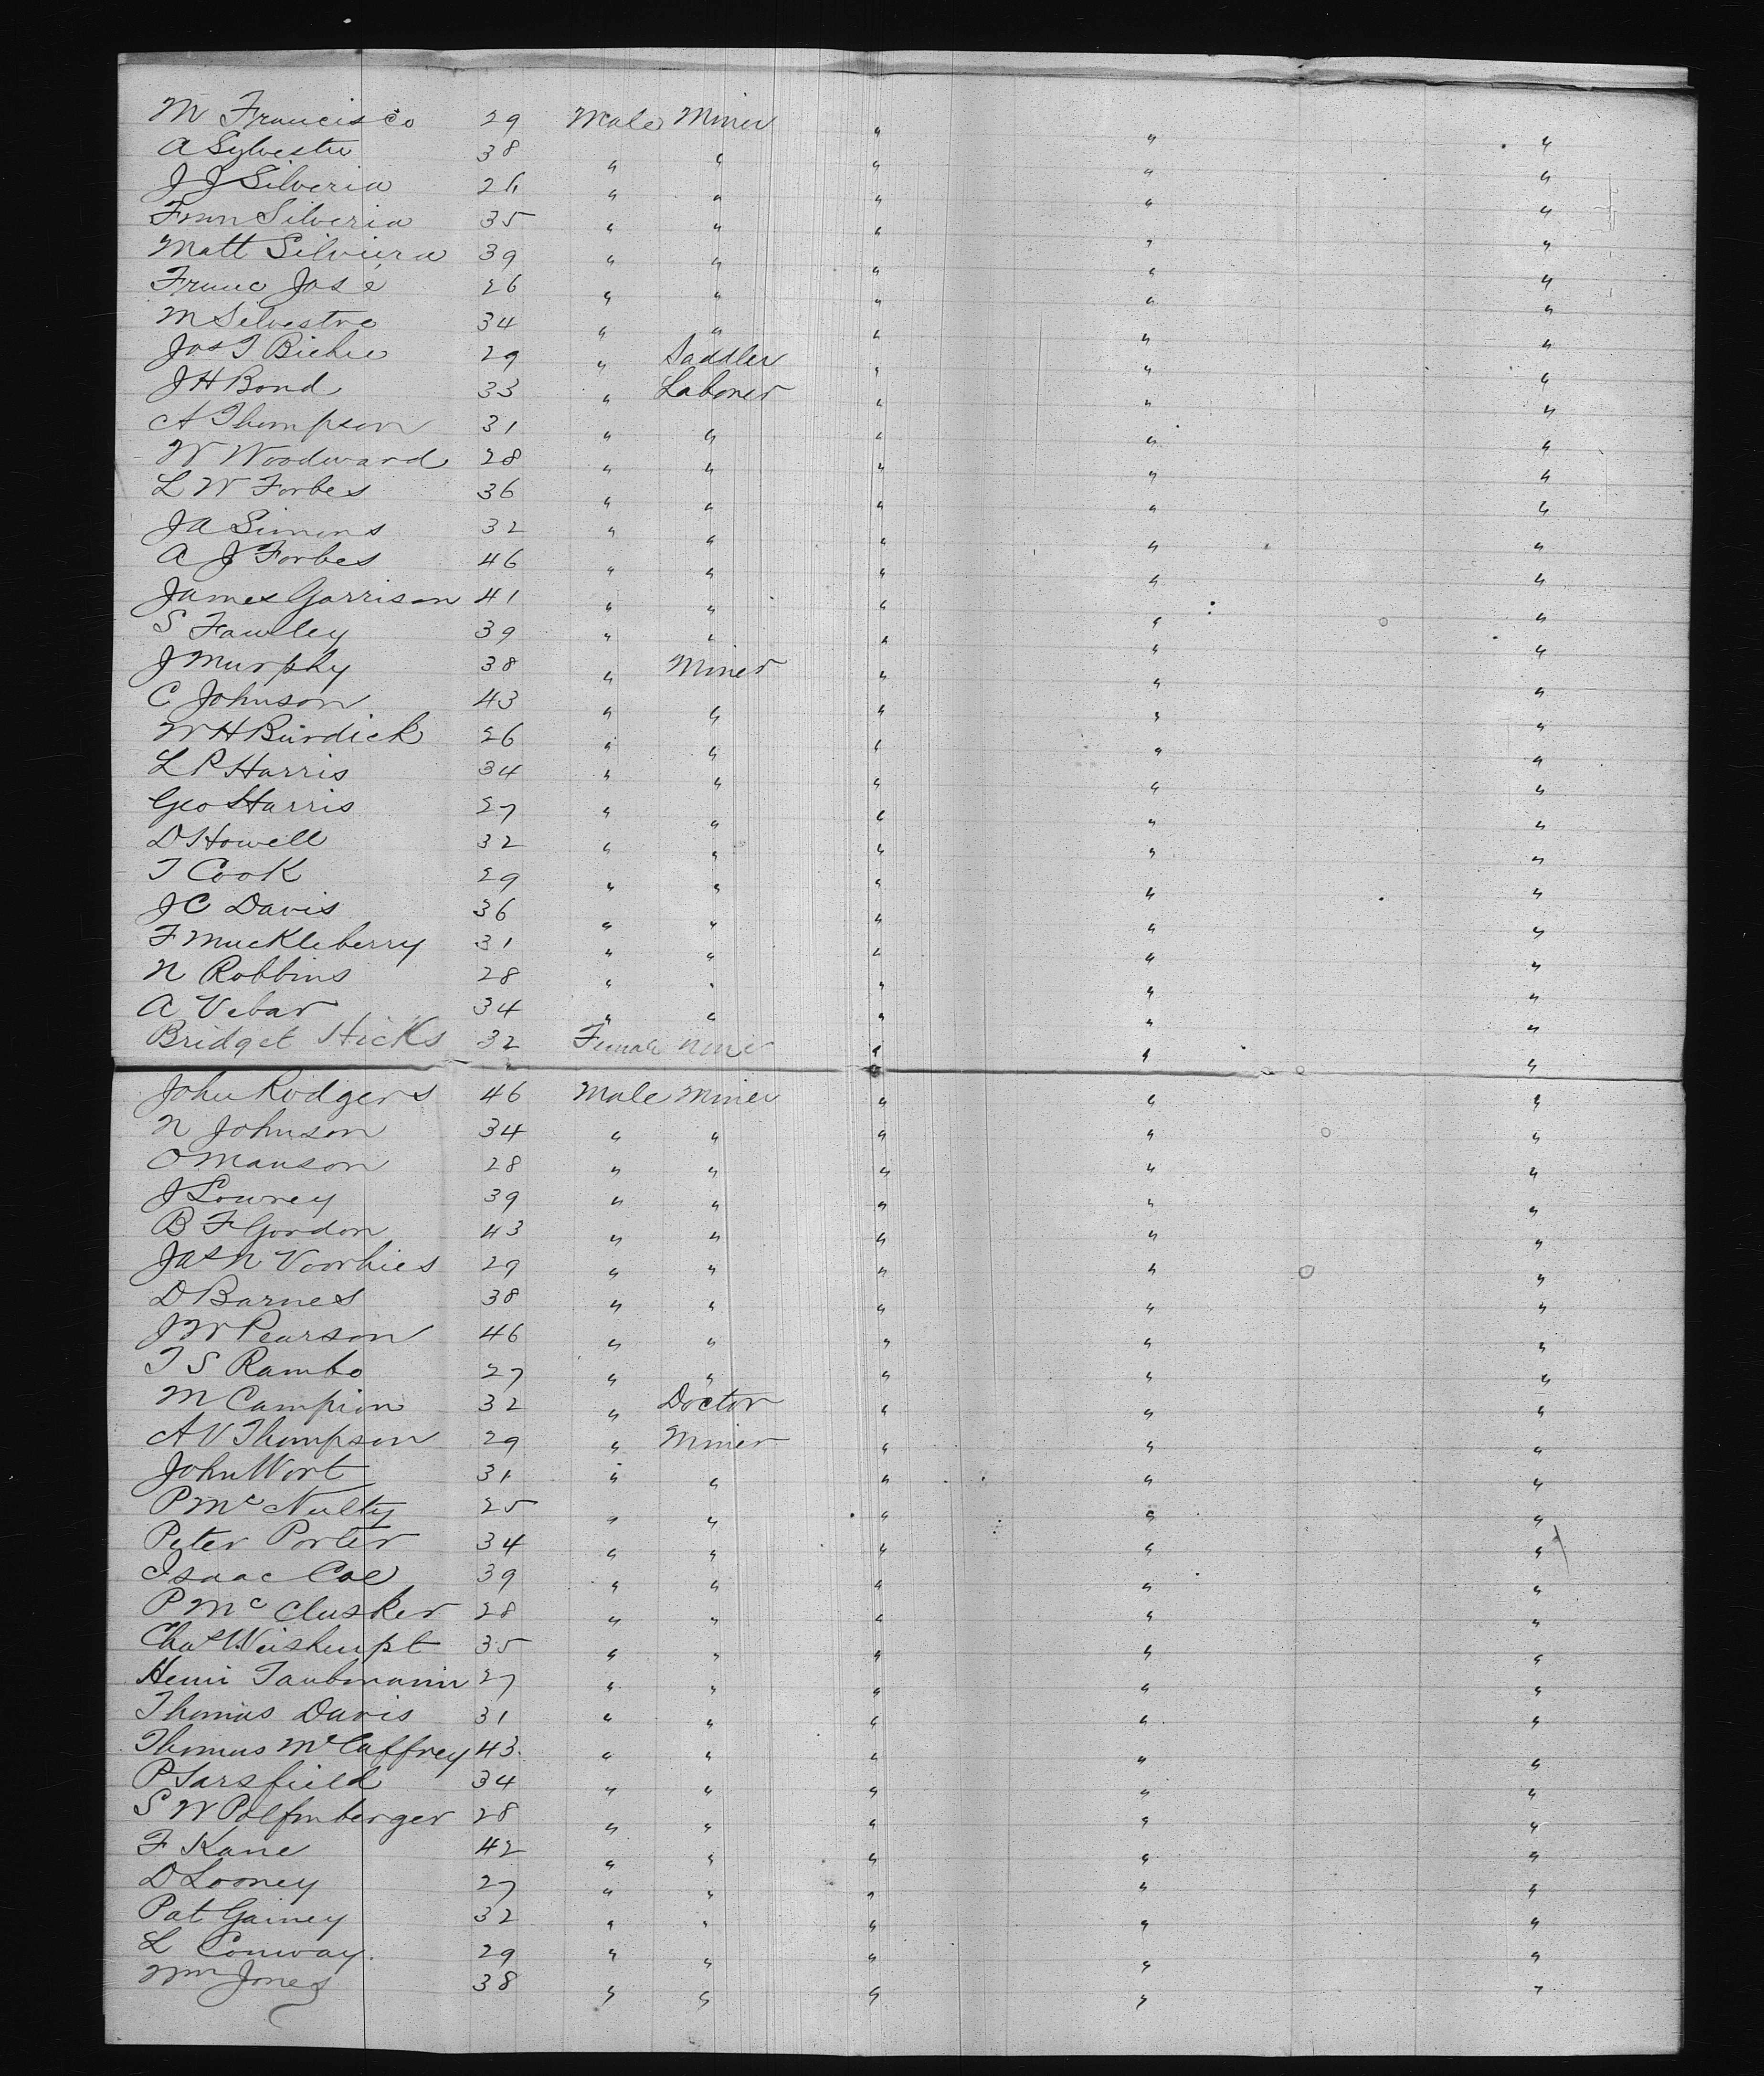 M Francisco 29 Male Miner " " "
A Sylvestre 38 " " " " "
J J Silveria 26 " " " " "
Fran Silveria 35 " " " " "
Matt Silviera 39 " " " " "
Franc José 26 " " " " "
M Silvestre 34 " " " " "
Jas T Bickie 29 " Saddler " " "
J H Bond 33 " Laborer " " "
A Thompson 31 " " " " "
W Woodward 28 " " " " "
L W Forbes 36 " " " " "
J A Simons 32 " " " " "
A J Forbes 46 " " " " "
James Garrison 41 " " " " "
S Fawley 39 " " " " "
J Murphy 38 " Miner " " "
C Johnson 43 " " " " "
W H Burdick 26 " " " " "
L P Harris 34 " " " " "
Geo Harris 27 " " " " "
D Howell 32 " " " " "
T Cook 29 " " " " "
J C Davis 36 " " " " "
F Muckleberry 31 " " " " "
N Robbins 28 " " " " "
A Vebar 34 " " " " "
Bridget Hicks 32 Female none " " "
John Rodgers 46 Male Miner " " "
N Johnson 34 " " " " "
O Manson 28 " " " " "
J Lowrey 39 " " " " "
B F Gordon 43 " " " " "
Jas N Voorhies 29 " " " " "
D Barnes 38 " " " " "
J W Pearson 46 " " " " "
T S Rambo 27 " " " " "
M Campion 32 " Doctor " " "
A V Thompson 29 " Miner " " "
John Wort 31 " " " " "
P McNulty 25 " " " " "
Peter Porter 34 " " " " "
Isaac Coe 39 " " " " "
P McClusker 28 " " " " "
Chas Weishupt 35 " " " " "
Henri Taubmann 27 " " " " "
Thomas Davis 31 " " " " "
Thomas McCaffrey 43 " " " " "
P Sarsfield 34 " " " " "
S W 28 " " " " "
F Kane 42 " " " " "
D Looney 27 " " " " "
Pat Gainey 32 " " " " "
L Conway. 29 " " " " "
Wm Jones 38 " " " " "